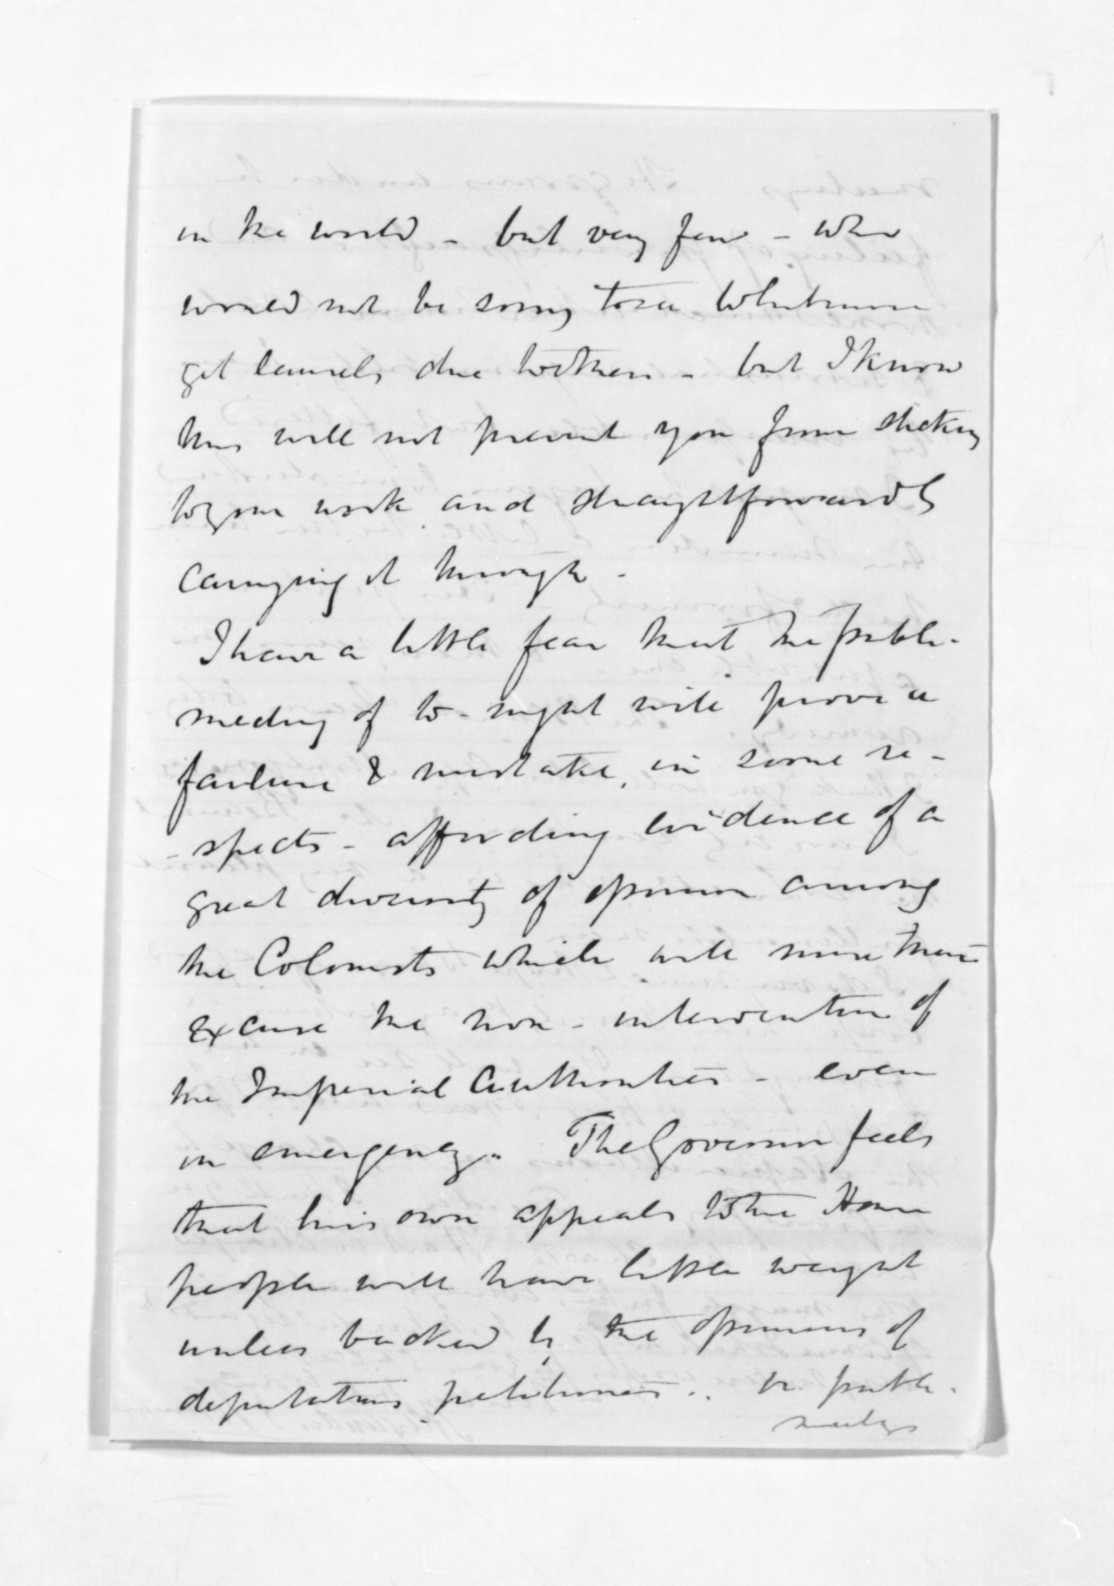 in the world - but very few - who
would not be sorry to see Whitmore
get laurels due to others - but I know
this will not prevent you from sticking
to your work and straightforwardly
carrying it through -
I have a little fear that the public
meeting of to-night will prove a
failure & mistake, in some re-
-spects - affording evidence of a
great diversity of opinion among
the Colonists which will more than
excuse the non-intervention of
the Imperial Authorities - even
in emergency. The Governor feels
that his own appeals to the Home
people will have little weight
unless backed by the opinions of
deputations petitioners .. or public
meetings